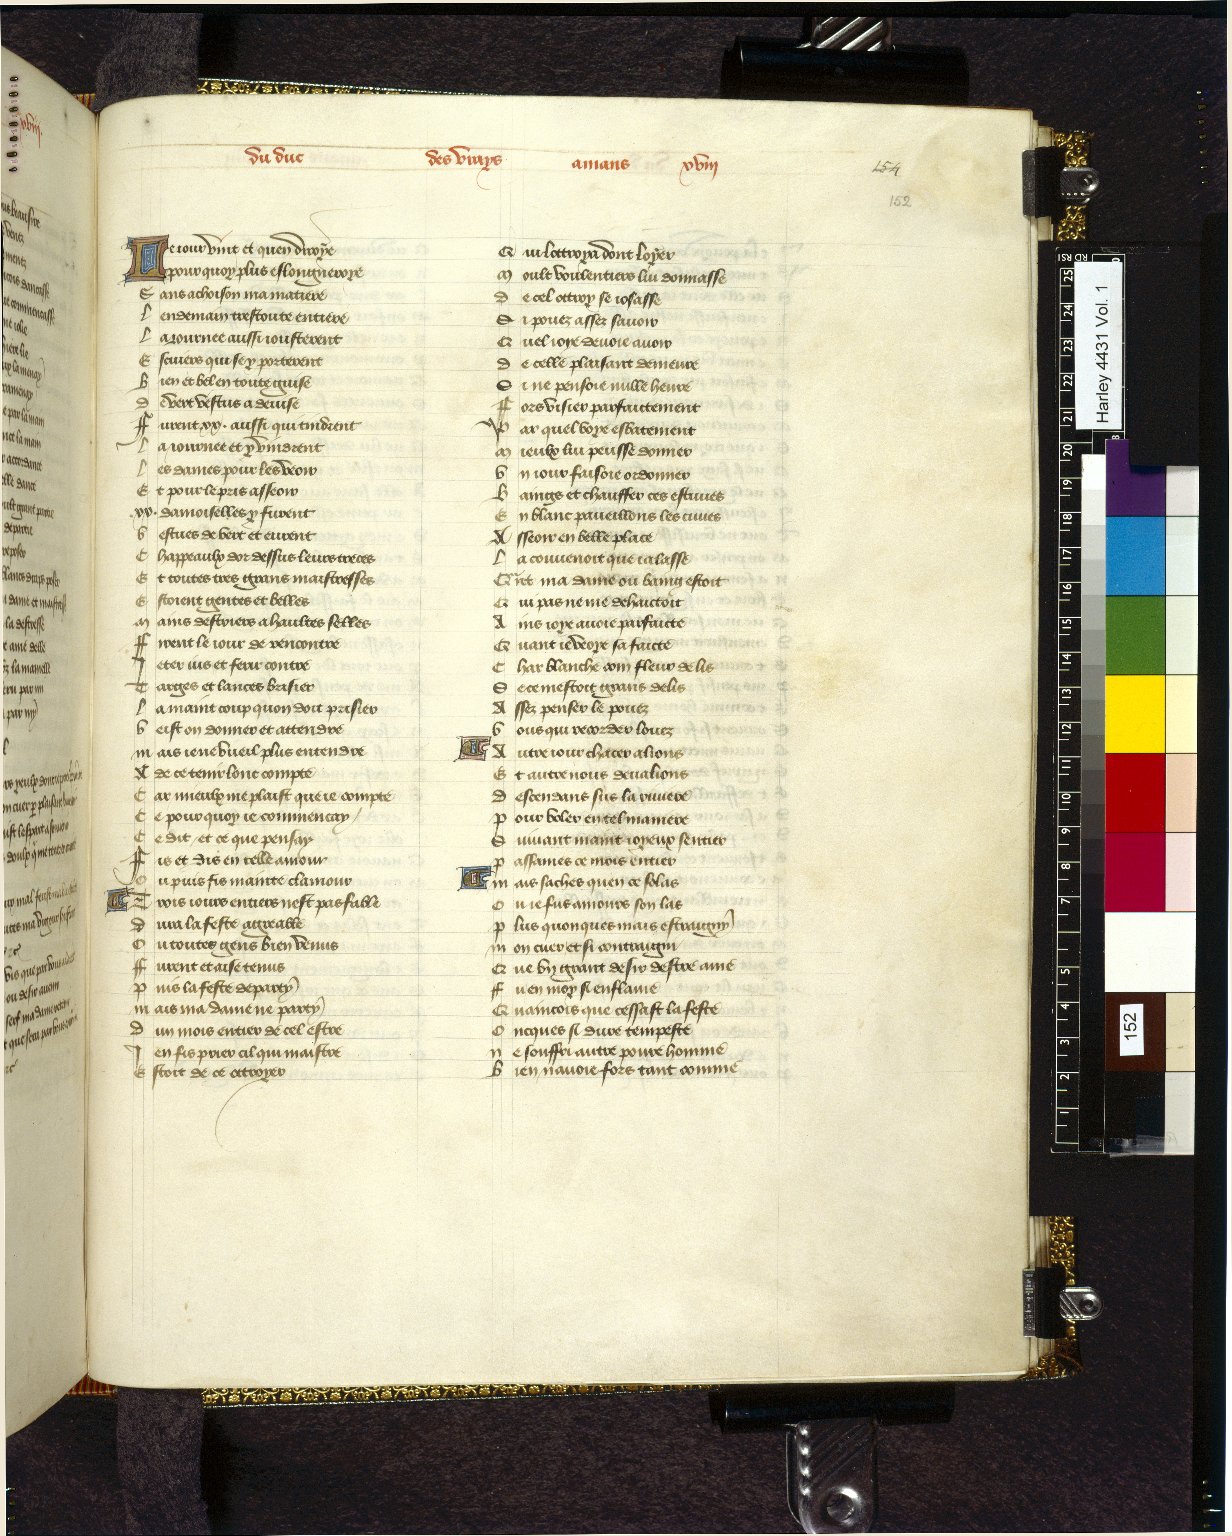 du duc des vrays amans xviii
154
152
Le jour vint et quen diroye
pour quoy plus eslongneroye
Sans achoison ma matiere
Lendemain trestoute entiere
La journee aussi jousterent
Escuiers qui se y porterent
Bien et bel en toute guise
de vert vestus a devise
Furent .xx. aussi qui tindrent
La journee et y vindrent
Les dames pour les veoir
Et pour le pris asseoir
.xv. damoiselles y furent
Vestues de vert et eurent
Chappeaulx dor dessus leurs treces
Et toutes tres grans maistresses
Estoient gentes et belles
Mains destriers a haultes selles
Firent le jour de rencontre
Jeter jus et ferir contre
Targes et lances brisier
La maint coup quon doit prisier
Veist on donner et attendre
mais je ne vueil plus entendre
A de ce tenir lonc compte
Car mieulx me plaist que je compte
Ce pour quoy je commencay
Ce dit / et ce que pensay
Fis et dis en celle amour
Ou puis fis mainte clamour
Trois jours entiers nest pas fable
dura la feste aggreable
Ou toutes gens bien venus
Furent et aise tenus
puis la feste departy
mais ma dame ne party
dun mois entier de cel estre
Jen fis prier cil qui maistre
Estoit de ce ottroyer
Qui lottroya dont loyer
Moult voulentiers lui donnasse
de cel ottroy se josasse
Si pouez assez savoir
Quel joye devoie avoir
de celle plaisant demeure
Si ne pensoie nulle heure
Fors visier parfaictement
Par quel voye esbatement
Mieulx lui peusse donner
Un jour faisoie ordonner
Baings et chauffer ces estuves
En blanc paveillons les cuves
Asseoir en belle place
La convenoit que jalasse
Quant ma dame ou baing estoit
Qui pas ne me dehaitoit
Ains joye avoie parfaicte
Quant je veoye sa faicte
Char blanche com fleur de lis
Se ce mestoit grans delis
Assez penser le pouez
Vous qui recorder louez
Autre jour chacer alions
Et autre nous devalions
descendans sus la riviere
pour voler en tel maniere
Suivant maint joyeux sentier
passames ce mois entier
mais saches quen ce solas
Ou je fus amours son las
plus quonques mais estraigny
mon cuer et si contraigni
Que un grant desir destre amé
Fu en moy si enflamé
Quaincois que cessast la feste
Oncques si dure tempeste
ne souffri autre povre homme
Bien navoie fors tant comme
Harley 4431 Vol. 1
152